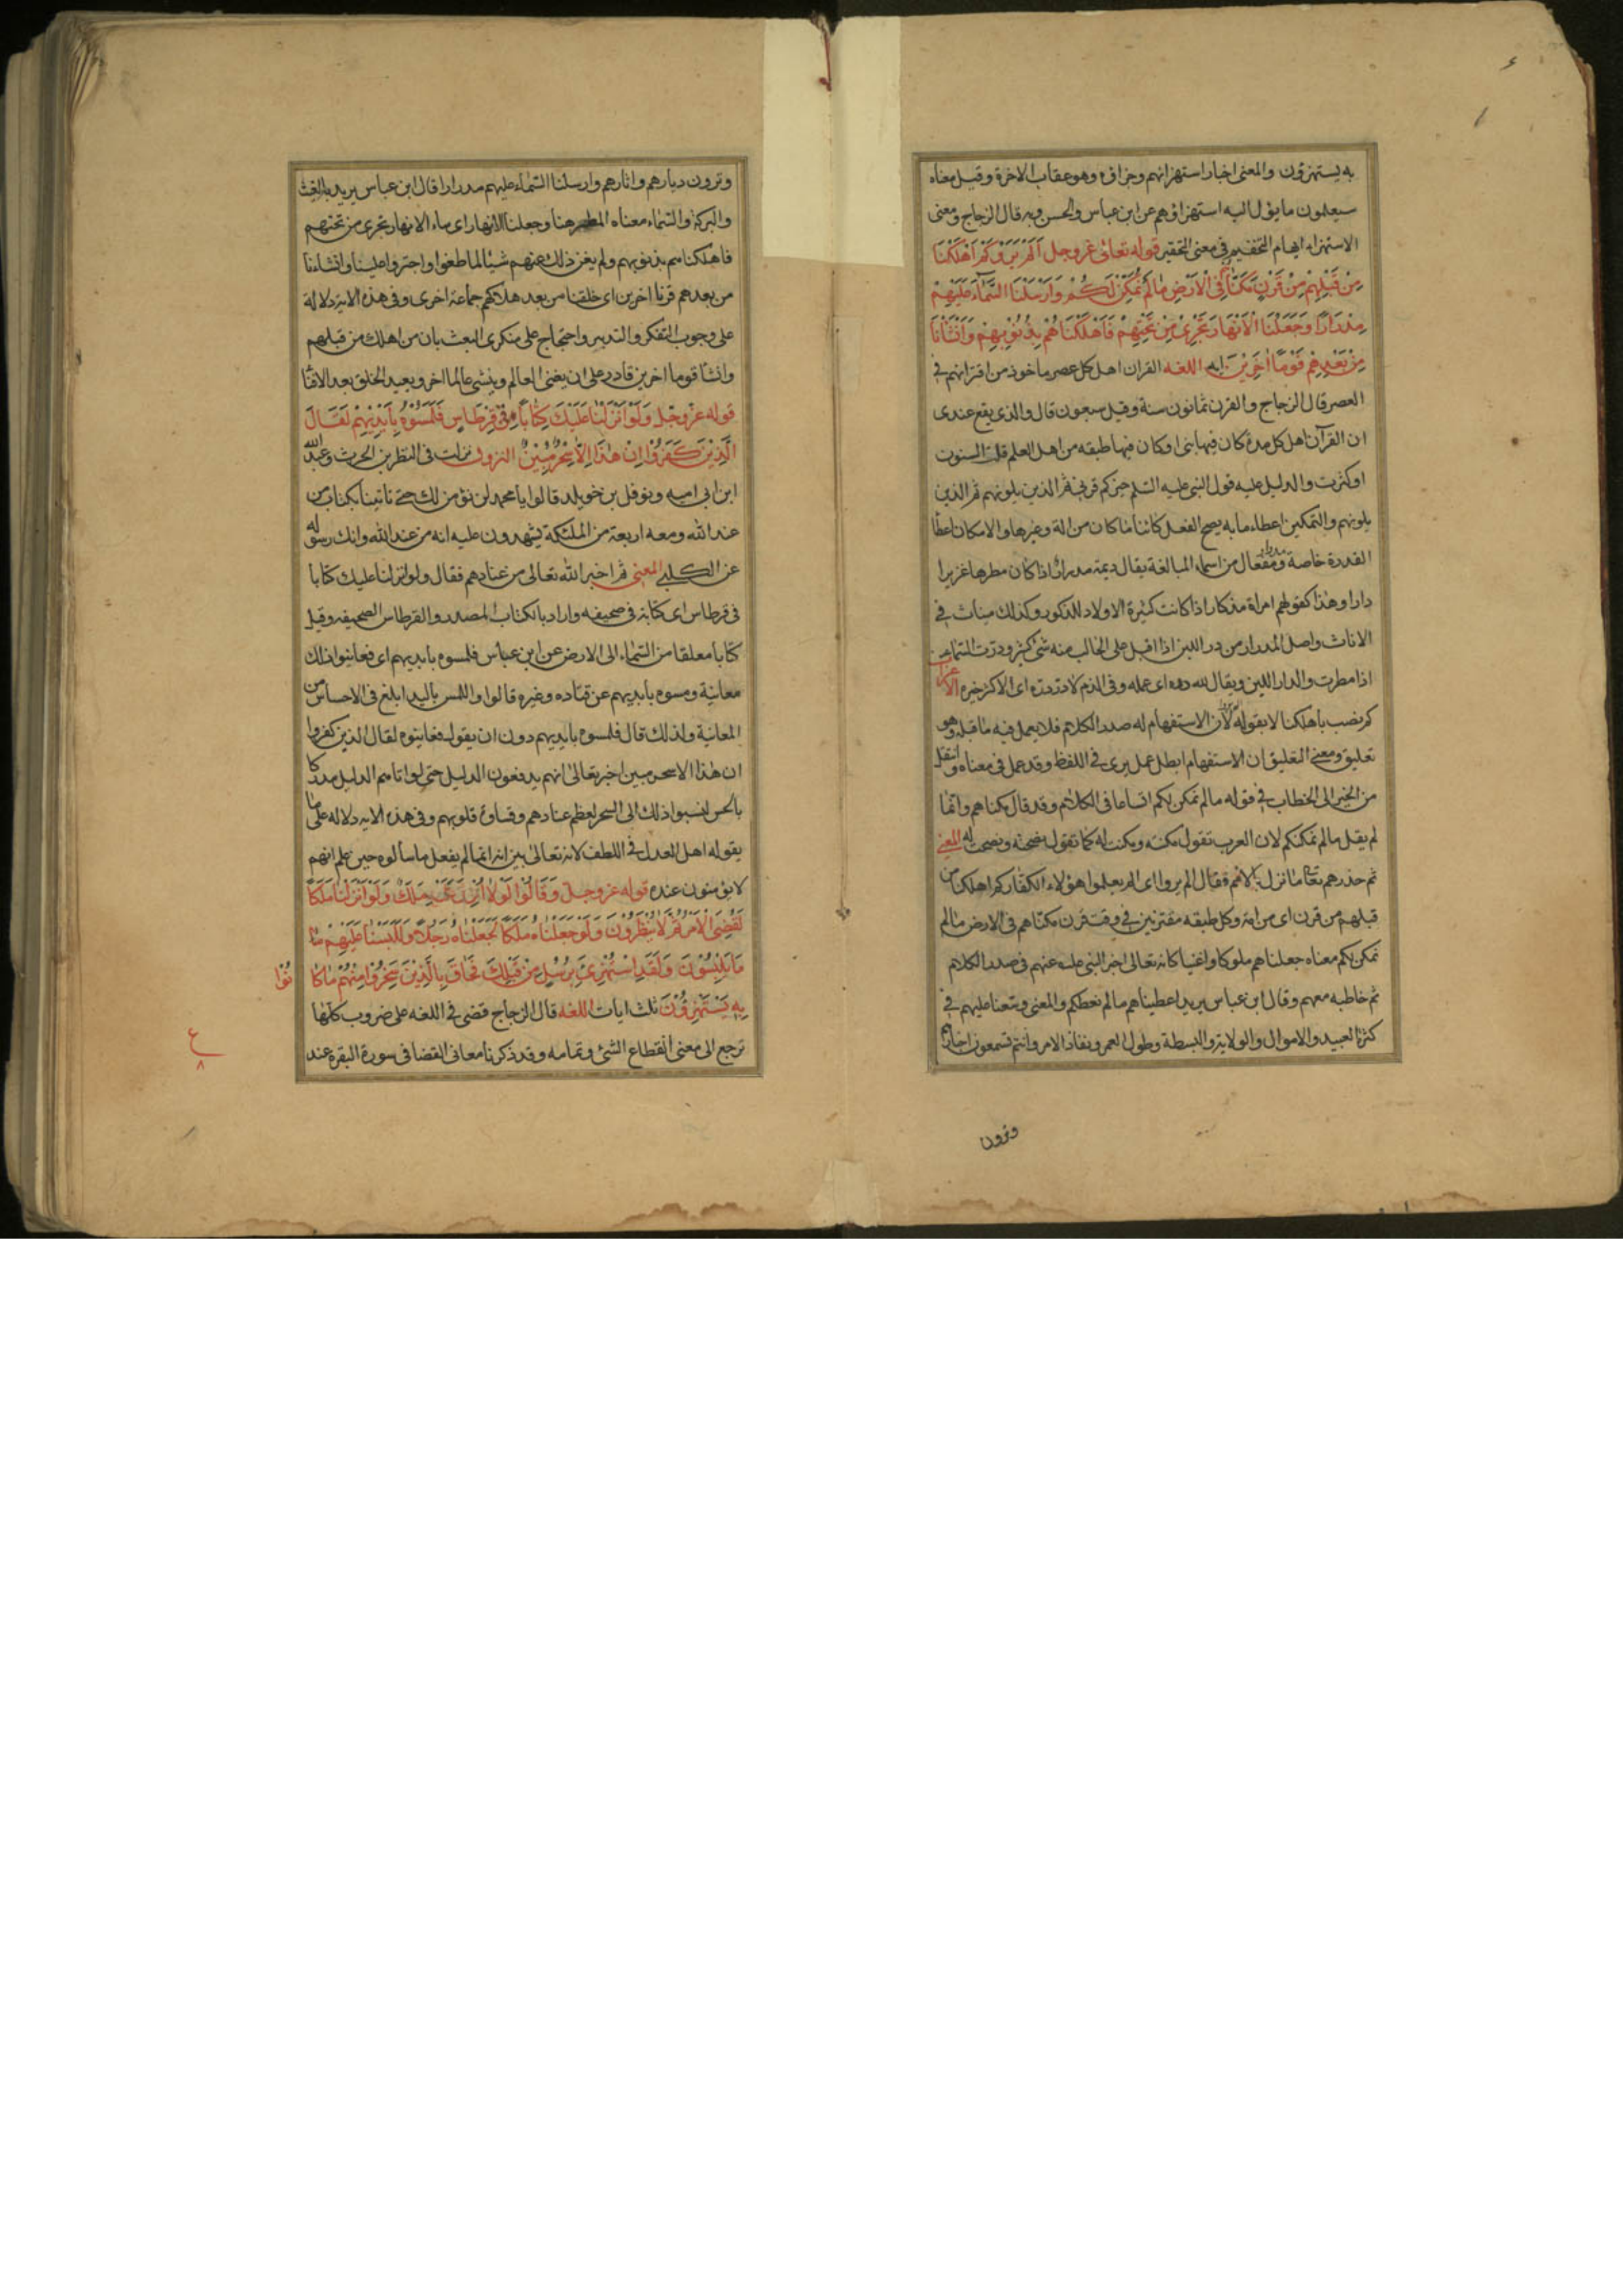 به يستهزؤن والمعنى اخبار استهزائهم وجزاؤه وهو عقاب الاخرة وقيل معناه
سيعلمون ما يؤل اليه استهزاؤهم عن ابن عباس والحسن وبه قال الزجاج ومعنى
الاستهزاء ايهام التفخيم في معنى التحقير قوله تعالى عز وجل اَلَمْ يَرَوْا كَمْ اَهْلَكْنَا
مِنْ قَبْلِهِمْ مِنْ قَرْنٍ مَكَّنَّاهُمْ فِى الْاَرْضِ مَا لَمْ نُمَكِّنْ لَكُمْ وَاَرْسَلْنَا السَّمَآءَ عَلَيْهِمْ
مِدْرَارًا وَجَعَلْنَا الْاَنْهَارَ تَجْرِىْ مِنْ تَحْتِهِمْ فَاَهْلَكْنَاهُمْ بِذُنُوْبِهِمْ وَاَنْشَأْنَا
مِنْ بَعْدِهِمْ قَوْمًا اٰخَرِيْنَ ايه اللغه القران اهل كل عصر ماخوذ من اقترانهم في
العصر قال الزجاج والقرن ثمانون سنة وقيل سبعون قال والذى يقع عندى
ان القرآن اهل كل مدة كان فيها نبى او كان فيها طبقه من اهل العلم قلت السنون
او كثرت والدليل عليه قول النبى عليه السلم خيركم قرنى ثم الذين يلونهم ثم الذين
يلونهم والتمكين اعطاء ما به يصح الفعل كائنا ما كان من الة وغيرها والامكان اعطا
القدرة خاصة ومفعال من اسماء المبالغة يقال ديمة مدرار اذا كان مطرها غزيرا
دارا وهذا كقولهم امراة مذكار اذا كانت كثيرة الاولاد للذكور وكذلك ميناث في
الاناث واصل المدرار من در اللبن اذا اقبل على الحالب منه شئ كثير ودرت السماء
اذا مطرت والدار اللبن ويقال لله دره اى عمله وفى الذم لا در دره اى لا كثر خيره الاعراب
كم نصب باهلكنا لا بقوله يروا لان الاستفهام له صدر الكلام فلا يعمل فيه ما قبله وهو
تعليق ومعنى التعليق ان الاستفهام ابطل عمل يرى في اللفظ وقد عمل في معناه وانتقل
من الخبر الى الخطاب في قوله ما لم نمكن لكم اتساعا في الكلام وقد قال مكناهم وانما
لم يقل ما لم نمكنكم لان العرب تقول مكنته ومكنت له كما تقول نصحته ونصحت له المعنى
ثم حذرهم تعالى ما نزل بالامم فقال الم يروا اى الم يعلموا هؤلاء الكفار كم اهلكنا من
قبلهم من قرن اى من امة وكل طبقه مقترنين في وقت قرن مكناهم في الارض ما لم
نمكن لكم معناه جعلناهم ملوكا واغنيا كانه تعالى اخبر النبى عليه عنهم في صدر الكلام
ثم خاطبه معهم وقال ابن عباس يريد اعطيناهم ما لم نعطكم والمعنى وسّعنا عليهم في
كثرة العبيد والاموال والولاية والبسطة وطول العمر ونفاذ الامر وانتم تسمعون اخبارهم
وترون
وترون ديارهم واثارهم وارسلنا السماء عليهم مدرارا قال ابن عباس يريد بالغيث
والبركة والسماء معناه المطر هنا وجعلنا الانهار اى ماء الانهار تجرى من تحتهم
فاهلكناهم بذنوبهم ولم يغن ذلك عنهم شيئا لما طغوا واجتروا علينا وانشانا
من بعدهم قرنا اخرين اى خلقنا من بعد هلاكهم جماعة اخرى وفي هذه الاية دلالة
على وجوب التفكر والتدبر واحتجاج على منكرى البعث بان من اهلك من قبلهم
وانشا قوما اخرين قادر على ان يفنى العالم وينشى عالما اخر ويعيد الخلق بعد الافنا
قوله عز وجل وَلَوْ اَنْزَلْنَا عَلَيْكَ كِتَابًا فِىْ قِرْطَاسٍ فَلَمَسُوْهُ بِاَيْدِيْهِمْ لَقَالَ
الَّذِيْنَ كَفَرُوْا اِنْ هٰذَا اِلَّا سِحْرٌ مُبِيْنٌ النزول نزلت في النظر بن الحرث وعبد الله
ابن ابى اميه ونوفل بن خويلد قالوا يا محمد لن نؤمن لك حتى تاتينا بكتاب من
عند الله ومعه اربعة من الملئكة يشهدون عليه انه من عند الله وانك رسوله
عن الكلبى المعنى ثم اخبر الله تعالى من عنادهم فقال ولو انزلنا عليك كتابا
في قرطاس اى كتابة في صحيفه واراد بالكتاب المصدر والقرطاس الصحيفه وقيل
كتابا معلقا من السماء الى الارض عن ابن عباس فلمسوه بايديهم اى فعاينوا ذلك
معاينة ومسوه بايديهم عن قتاده وغيره قالوا واللمس باليد ابلغ في الاحساس من
المعاينة ولذلك قال فلمسوه بايديهم دون ان يقول فعاينوه لقال الذين كفروا
ان هذا الا سحر مبين اخبر تعالى انهم يدفعون الدليل حتى لو اتاهم الدليل مدركا
بالحس لنسبوا ذلك الى السحر لعظم عنادهم وقساوة قلوبهم وفي هذه الايه دلاله على ما
يقوله اهل العدل في اللطف لانه تعالى بين انه انما لم يفعل ما سالوه حين علم انهم
لا يؤمنون عنده قوله عز وجل وَقَالُوْا لَوْلَا اُنْزِلَ عَلَيْهِ مَلَكٌ وَلَوْ اَنْزَلْنَا مَلَكًا
لَقُضِىَ الْاَمْرُ ثُمَّ لَا يُنْظَرُوْنَ وَلَوْ جَعَلْنَاهُ مَلَكًا لَجَعَلْنَاهُ رَجُلًا وَلَلَبَسْنَا عَلَيْهِمْ مَا
مَا يَلْبِسُوْنَ وَلَقَدِ اسْتُهْزِئَ بِرُسُلٍ مِنْ قَبْلِكَ فَحَاقَ بِالَّذِيْنَ سَخِرُوْا مِنْهُمْ مَا كَا نُوْا
بِهٖ يَسْتَهْزِؤُنَ ثلث ايات اللغه قال الزجاج قضى في اللغه على ضروب كلها
ترجع الى معنى انقطاع الشئ وتمامه وقد ذكرنا معانى القضا في سورة البقرة عند
ع
٨